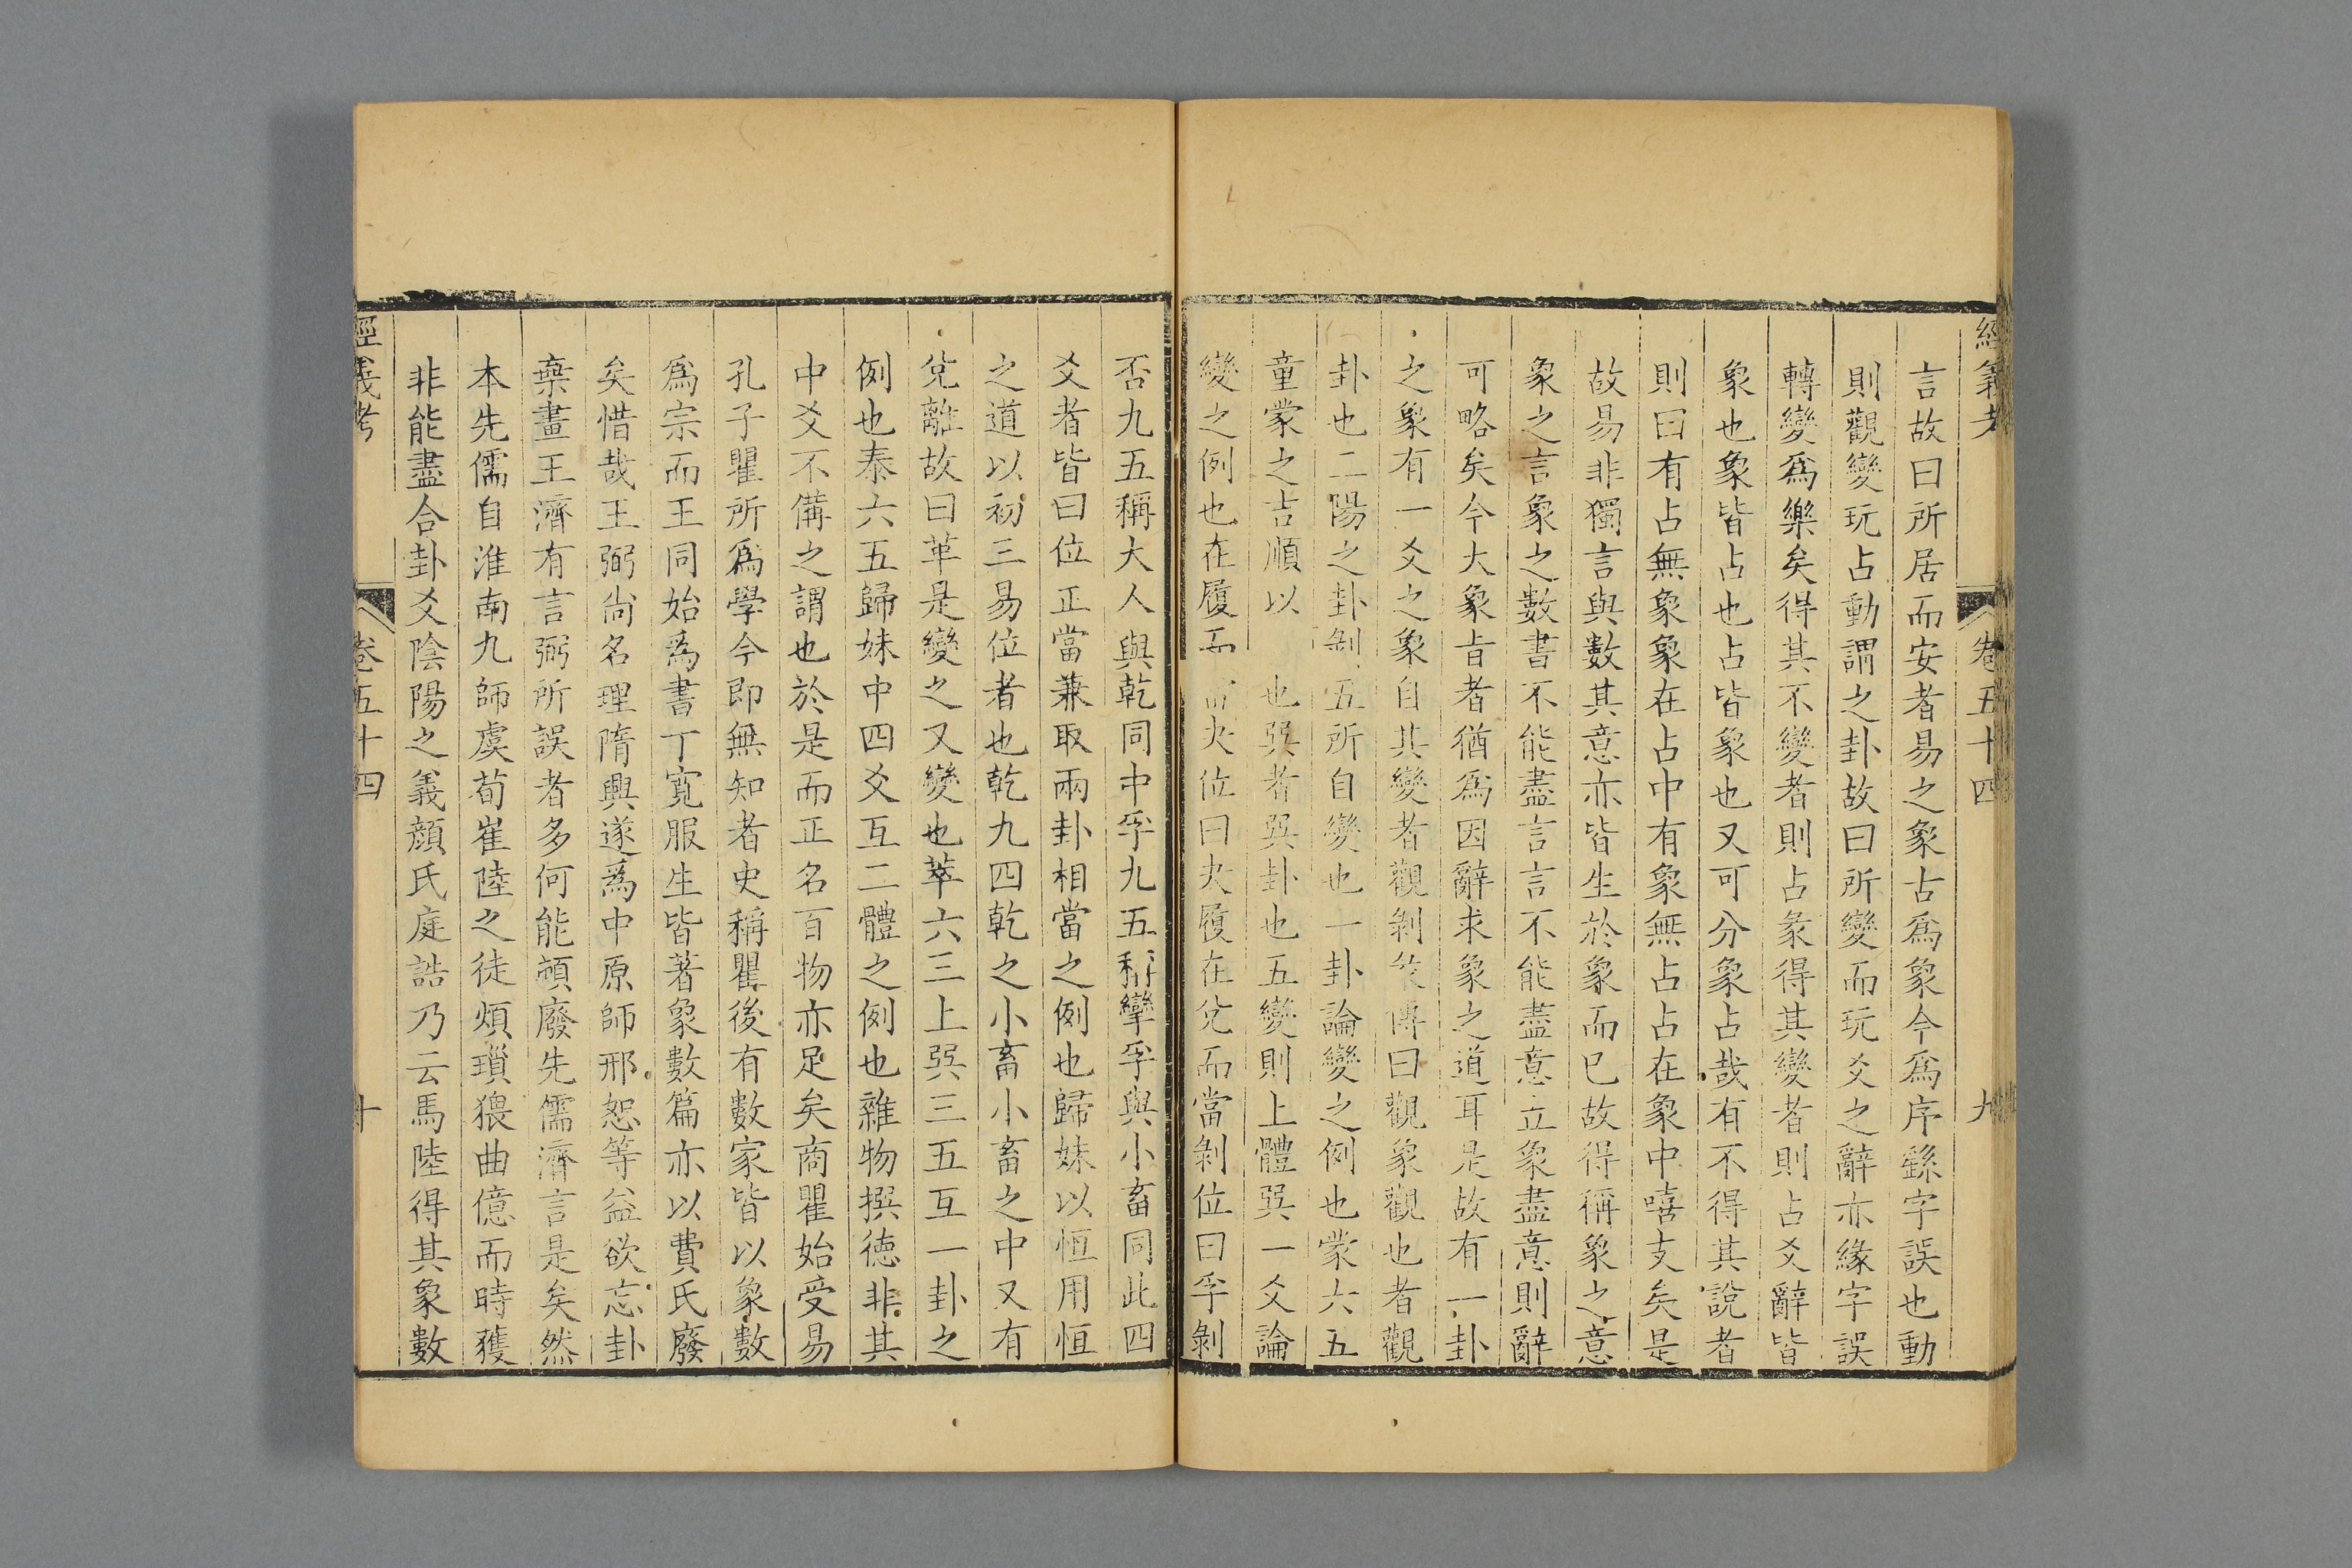 經義考 卷五十四 九
言故曰所居而安者易之象古爲象今爲序繇字誤也動
則觀變玩占動謂之卦故曰所變而玩爻之辭亦緣字誤
轉變爲樂矣得其不變者則占彖得其變者則占爻辭皆
象也象皆占也占皆象也又可分象占哉有不得其說者
則曰有占無象象在占中有象無占占在象中嘻支矣是
故易非獨言與數其意亦皆生於象而已故得稱象之意
象之言象之數書不能盡言言不能盡意立象盡意則辭
可略矣今大象旨者猶爲因辭求象之道耳是故有一卦
之象有一爻之象自其變者觀剝彖傳曰觀象觀也者觀
卦也二陽之卦剝五所自變也一卦論變之例也蒙六五
童蒙之吉順以也巽者巽卦也五變則上體巽一爻論
變之例也在履而夬位曰夬履在兌而當剝位曰孚剝
否九五稱大人與乾同中孚九五稱攣孚與小畜同此四
爻者皆曰位正當兼取兩卦相當之例也歸妹以恒用恒
之道以初三易位者也乾九四乾之小畜小畜之中又有
兌離故曰革是變之又變也萃六三上巽三五互一卦之
例也泰六五歸妹中四爻互二體之例也雜物撰德非其
中爻不備之謂也於是而正名百物亦足矣商瞿始受易
孔子瞿所爲學今即無知者史稱瞿後有數家皆以象數
爲宗而王同始爲書丁寬服生皆著象數篇亦以費氏廢
矣惜哉王弼尙名理隋興遂爲中原師邢恕等益欲忘卦
棄畫王濟有言弼所誤者多何能頓廢先儒濟言是矣然
本先儒自淮南九師虞荀崔陸之徒煩瑣猥曲億而時獲
非能盡合卦爻陰陽之義顔氏庭誥乃云馬陸得其象數
經義考 卷五十四 十